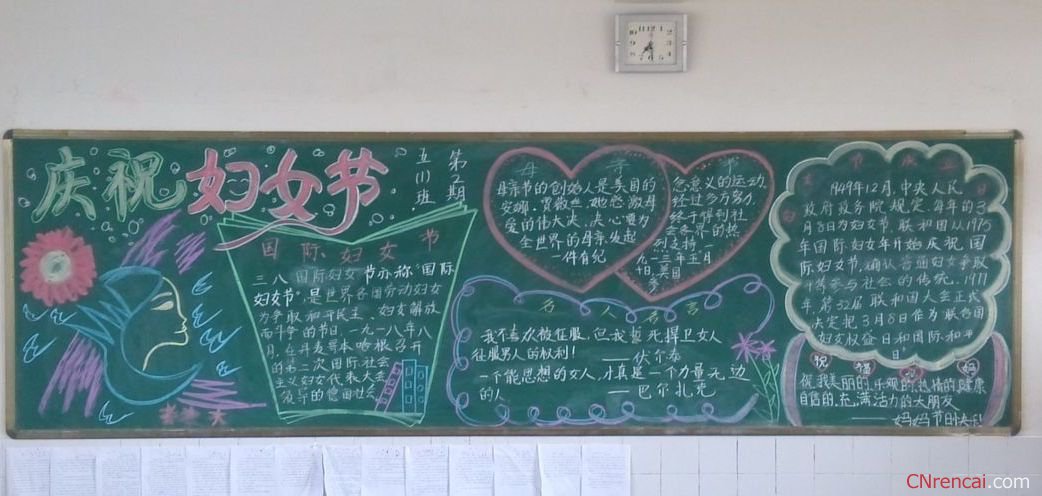 庆祝妇女节
五(1)班
第2期
国际妇女节
三八国际妇女节亦称"国际
妇女节",是世界各国劳动妇女
为争取和平民主、妇女解放
而斗争的节日,一九一八年八
月,在丹麦哥本哈根召开
的第二次国际社会
主义妇女代表大会
领导的德国社会
母亲节
母亲节的创始人是美国的
安娜·贾薇丝,她感激母
爱的伟大,决心要为
全世界的母亲发起
一件有纪
念意义的运动.
经过多方努力,
终于得到社
会各界的热
烈支持,一
九一三年五月
十日,美国
名人名言
我不喜欢被征服,但我誓死捍卫女人
征服男人的权利!
——伏尔泰
一个能思想的女人,才真是一个力量无边
的人
——巴尔扎克
1949年12月,中央人民
政府政务院规定,每年的3
月8日为妇女节,联合国从1975
年国际妇女年开始庆祝国
际妇女节,确认普通妇女争取
平等参与社会的传统.1977
年,第32届联和国大会正式
决定把3月8日作为联合国
妇女权益日和国际和平
日
祝福妈妈
祝我美丽的,乐观的,热情的,健康
自信的,充满活力的大朋友
——妈妈节日快乐
CNrencai.com